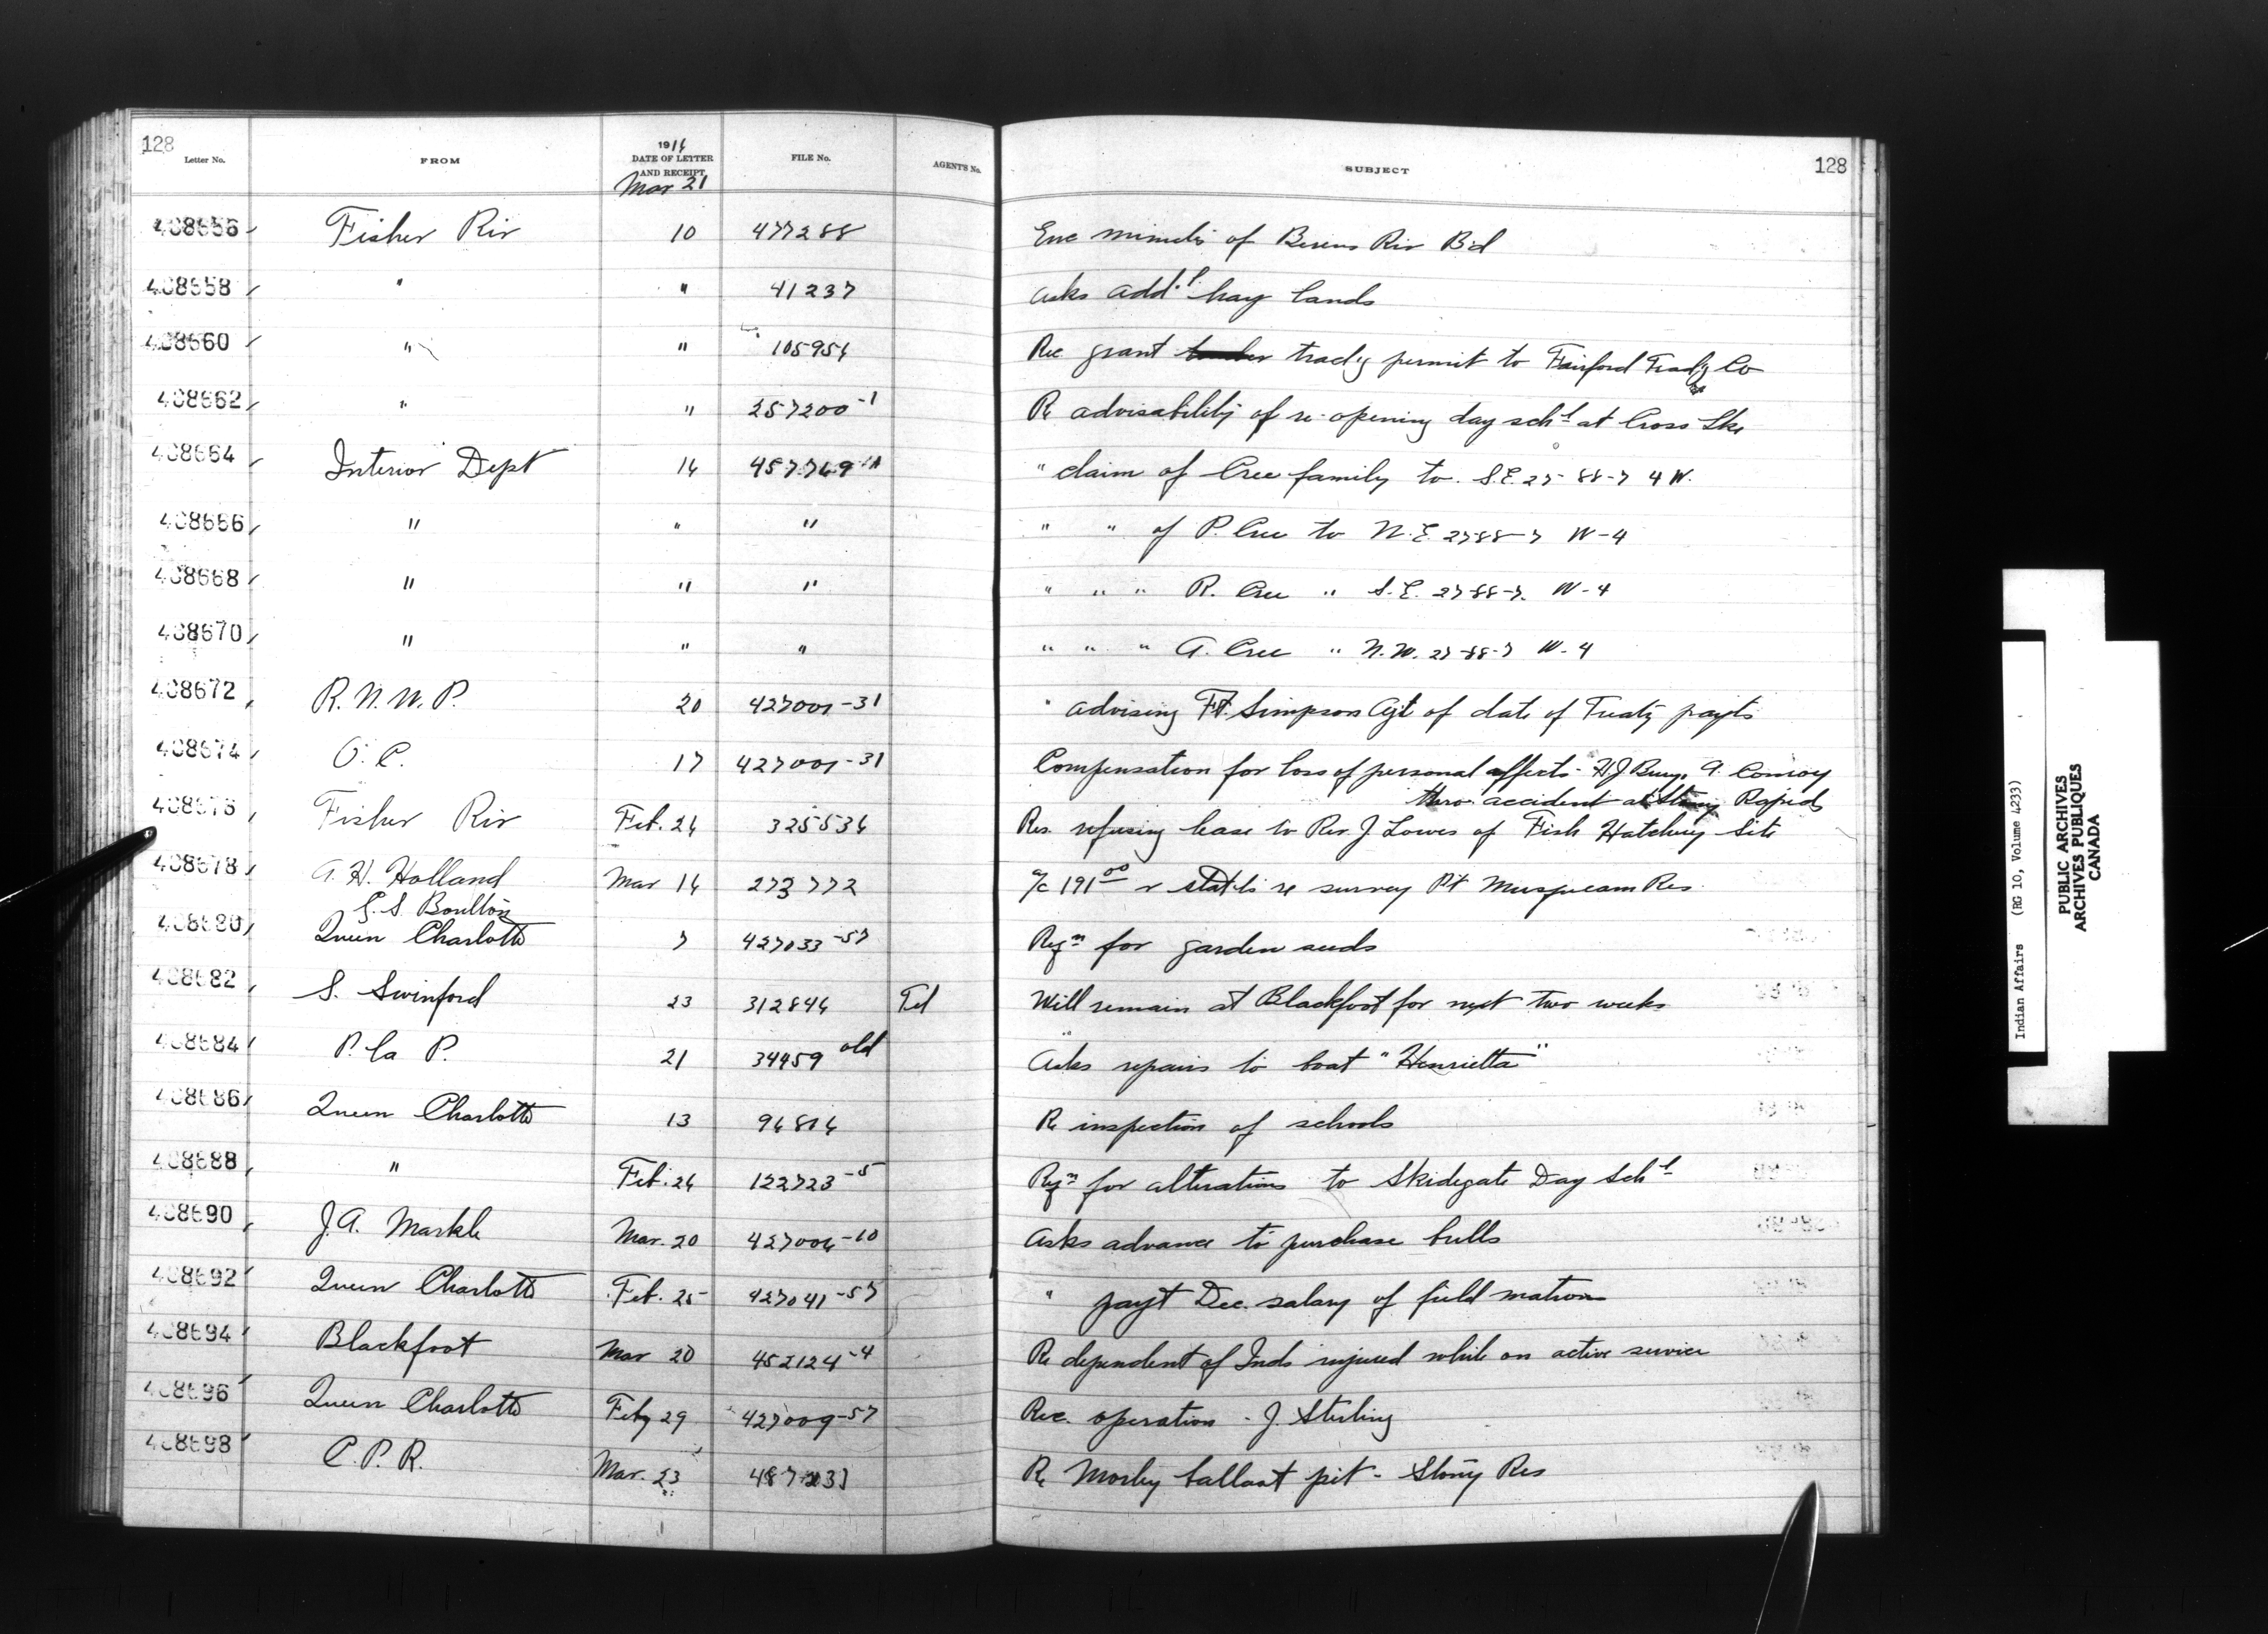 128
Letter No.
FROM
1916
DATE OF LETTER
AND RECEIPT
Mar 21
FILE No.
AGENT'S No.
SUBJECT
128
408656 Fisher Riv 10 477288 Enc minutes of Berens Riv Bd
408658 " " 41237 Asks add'l hay lands
408660 " " 105956 Rec grant trad'g permit to Fairford Trad'g Co
408662 " " 257200-1 Re advisability of re-opening day sch'l at Cross Lke
408664 Interior Dept 16 457769 " claim of Cree family to S.E. 27-88-7 4 W.
408666 " " " " " of P. Cree to N.E. 27-88-7 W-4
408668 " " " " " " R. Cree " S.E. 27-88-7. W-4
408670 " " " " " " A. Cree " N.W. 27-88-7 W-4
408672 R.N.W.P. 20 427001-31 " advising Ft. Simpson Agt of date of Treaty payts
408674 O.C. 17 427001-31 Compensation for loss of personal effects - H J Bury. A. Conroy
thro accident at Stony Rapids
408676 Fisher Riv Feb. 26 325536 Res. refusing lease to Rev J Lowes of Fish Hatchery Site
408678 A. H. Holland Mar 16 273772 a/c 191.00 & stat'ts re survey Pt Musqueam Res.
E. S. Boulton
408680 Queen Charlotte 7 427033-57 Reqn for garden seeds
408682 S. Swinford 23 312846 Tel Will remain at Blackfoot for next two weeks
408684 P. la P. 21 34459 old Asks repairs to boat "Henrietta"
408686 Queen Charlotte 13 96816 Re inspection of schools
408688 " Feb. 26 122723-5 Reqn for alterations to Skidegate Day Sch'l
408690 J. A. Markle Mar. 20 427006-10 Asks advance to purchase bulls
408692 Queen Charlotte Feb. 25 427041-57 " payt Dec. salary of field matrons
408694 Blackfoot Mar 20 452124-4 Re dependent of Inds injured while on active service
408696 Queen Charlotte Feby 29 427009-57 Rec. operation - J. Sterling
408698 C.P.R. Mar. 23 Re Morley ballast pit - Stony Res
Indian Affairs (RG 10, Volume 4233)
PUBLIC ARCHIVES
ARCHIVES PUBLIQUES
CANADA